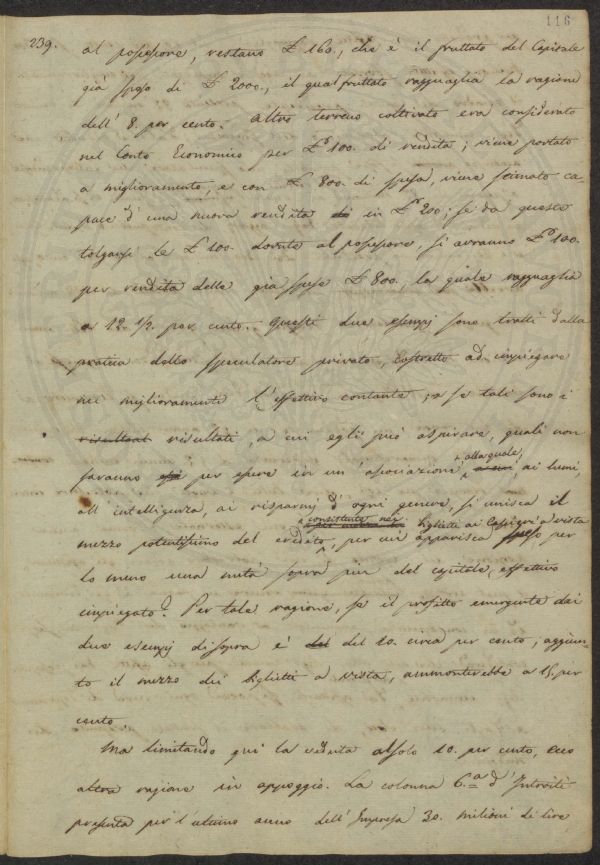 116
239.
al possessore, restano £ 160., che è il fruttato del Capitale
già speso di £ 2000., il qual fruttato ragguaglia la ragione
dell' 8. per cento. Altro terreno coltivato era considerato
nel Conto Economico per £ 100. di rendita; viene portato
a miglioramento, e con £ 800. di spesa, viene stimato ca-
pace d' una nuova rendita di in £ 200; se da queste
tolgansi le £ 100. dovute al possessore, si avranno £ 100.
per rendita delle già spese £ 800., la quale ragguaglia
a 12. 1/2. per cento. Questi due esempj sono tratti dalla
pratica dello speculatore privato, costretto ad impiegare
nei miglioramenti l'effettivo contante; e se tali sono i
risultati, a cui egli può aspirare, quali non
saranno per essere in un' associazione alla quale, ai lumi,
all' intelligenza, ai risparmj d' ogni genere, si unisca il
consistente nei biglietti ai Cassieri a vista
mezzo potentissimo del credito, per cui apparisca speso per
lo meno una metà sopra più del capitale effettivo
impiegato? Per tale ragione, se il profitto emergente dai
due esempj di sopra è del 10. circa per cento; aggiun-
to il mezzo dei biglietti a vista, ammonterebbe a 15. per
cento.
Ma limitando qui la veduta al solo 10. per cento, ecco
altra ragione in appoggio. La colonna 6.a d' Introiti
presenta per l' ultimo anno dell' Impresa 30. milioni di lire